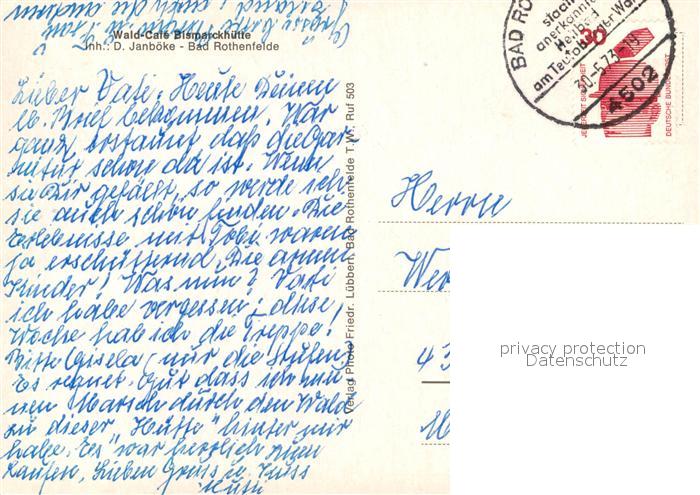 Wald-Café Bismarckhütte
Inh.: D. Janböke - Bad Rothenfelde
Lieber Vati: Heute Deinen
lb. Brief bekommen. War
ganz erstaunt, daß die Gar-
nitur schon da ist. Wenn
sie Dir gefällt, so werde ich
sie auch schön finden. Die
Erlebnisse mit waren
ja erschütternd. Die armen
Kinder! Was nun? Vati
ich habe vergessen: diese
Woche hab ich die Treppe!
Bitte Gisela, nur die Stufen.
Es regnet. Gut dass ich mei-
nen Marsch durch den Wald
zu dieser "Hütte" hinter mir
habe. Es war herrlich zum
Laufen. Lieben Gruss u. Kuss
Verlag Photo Friedr. Lübbert, Bad Rothenfelde T.W., Ruf 503
BAD RO
staatl.
anerkannt
Heilbad
am Teutoburger Wald
30.-5.73-19
4502
30
JEDERZEIT SICHERHEIT
DEUTSCHE BUNDESPOST
Herrn
Wer
43
privacy protection
Datenschutz